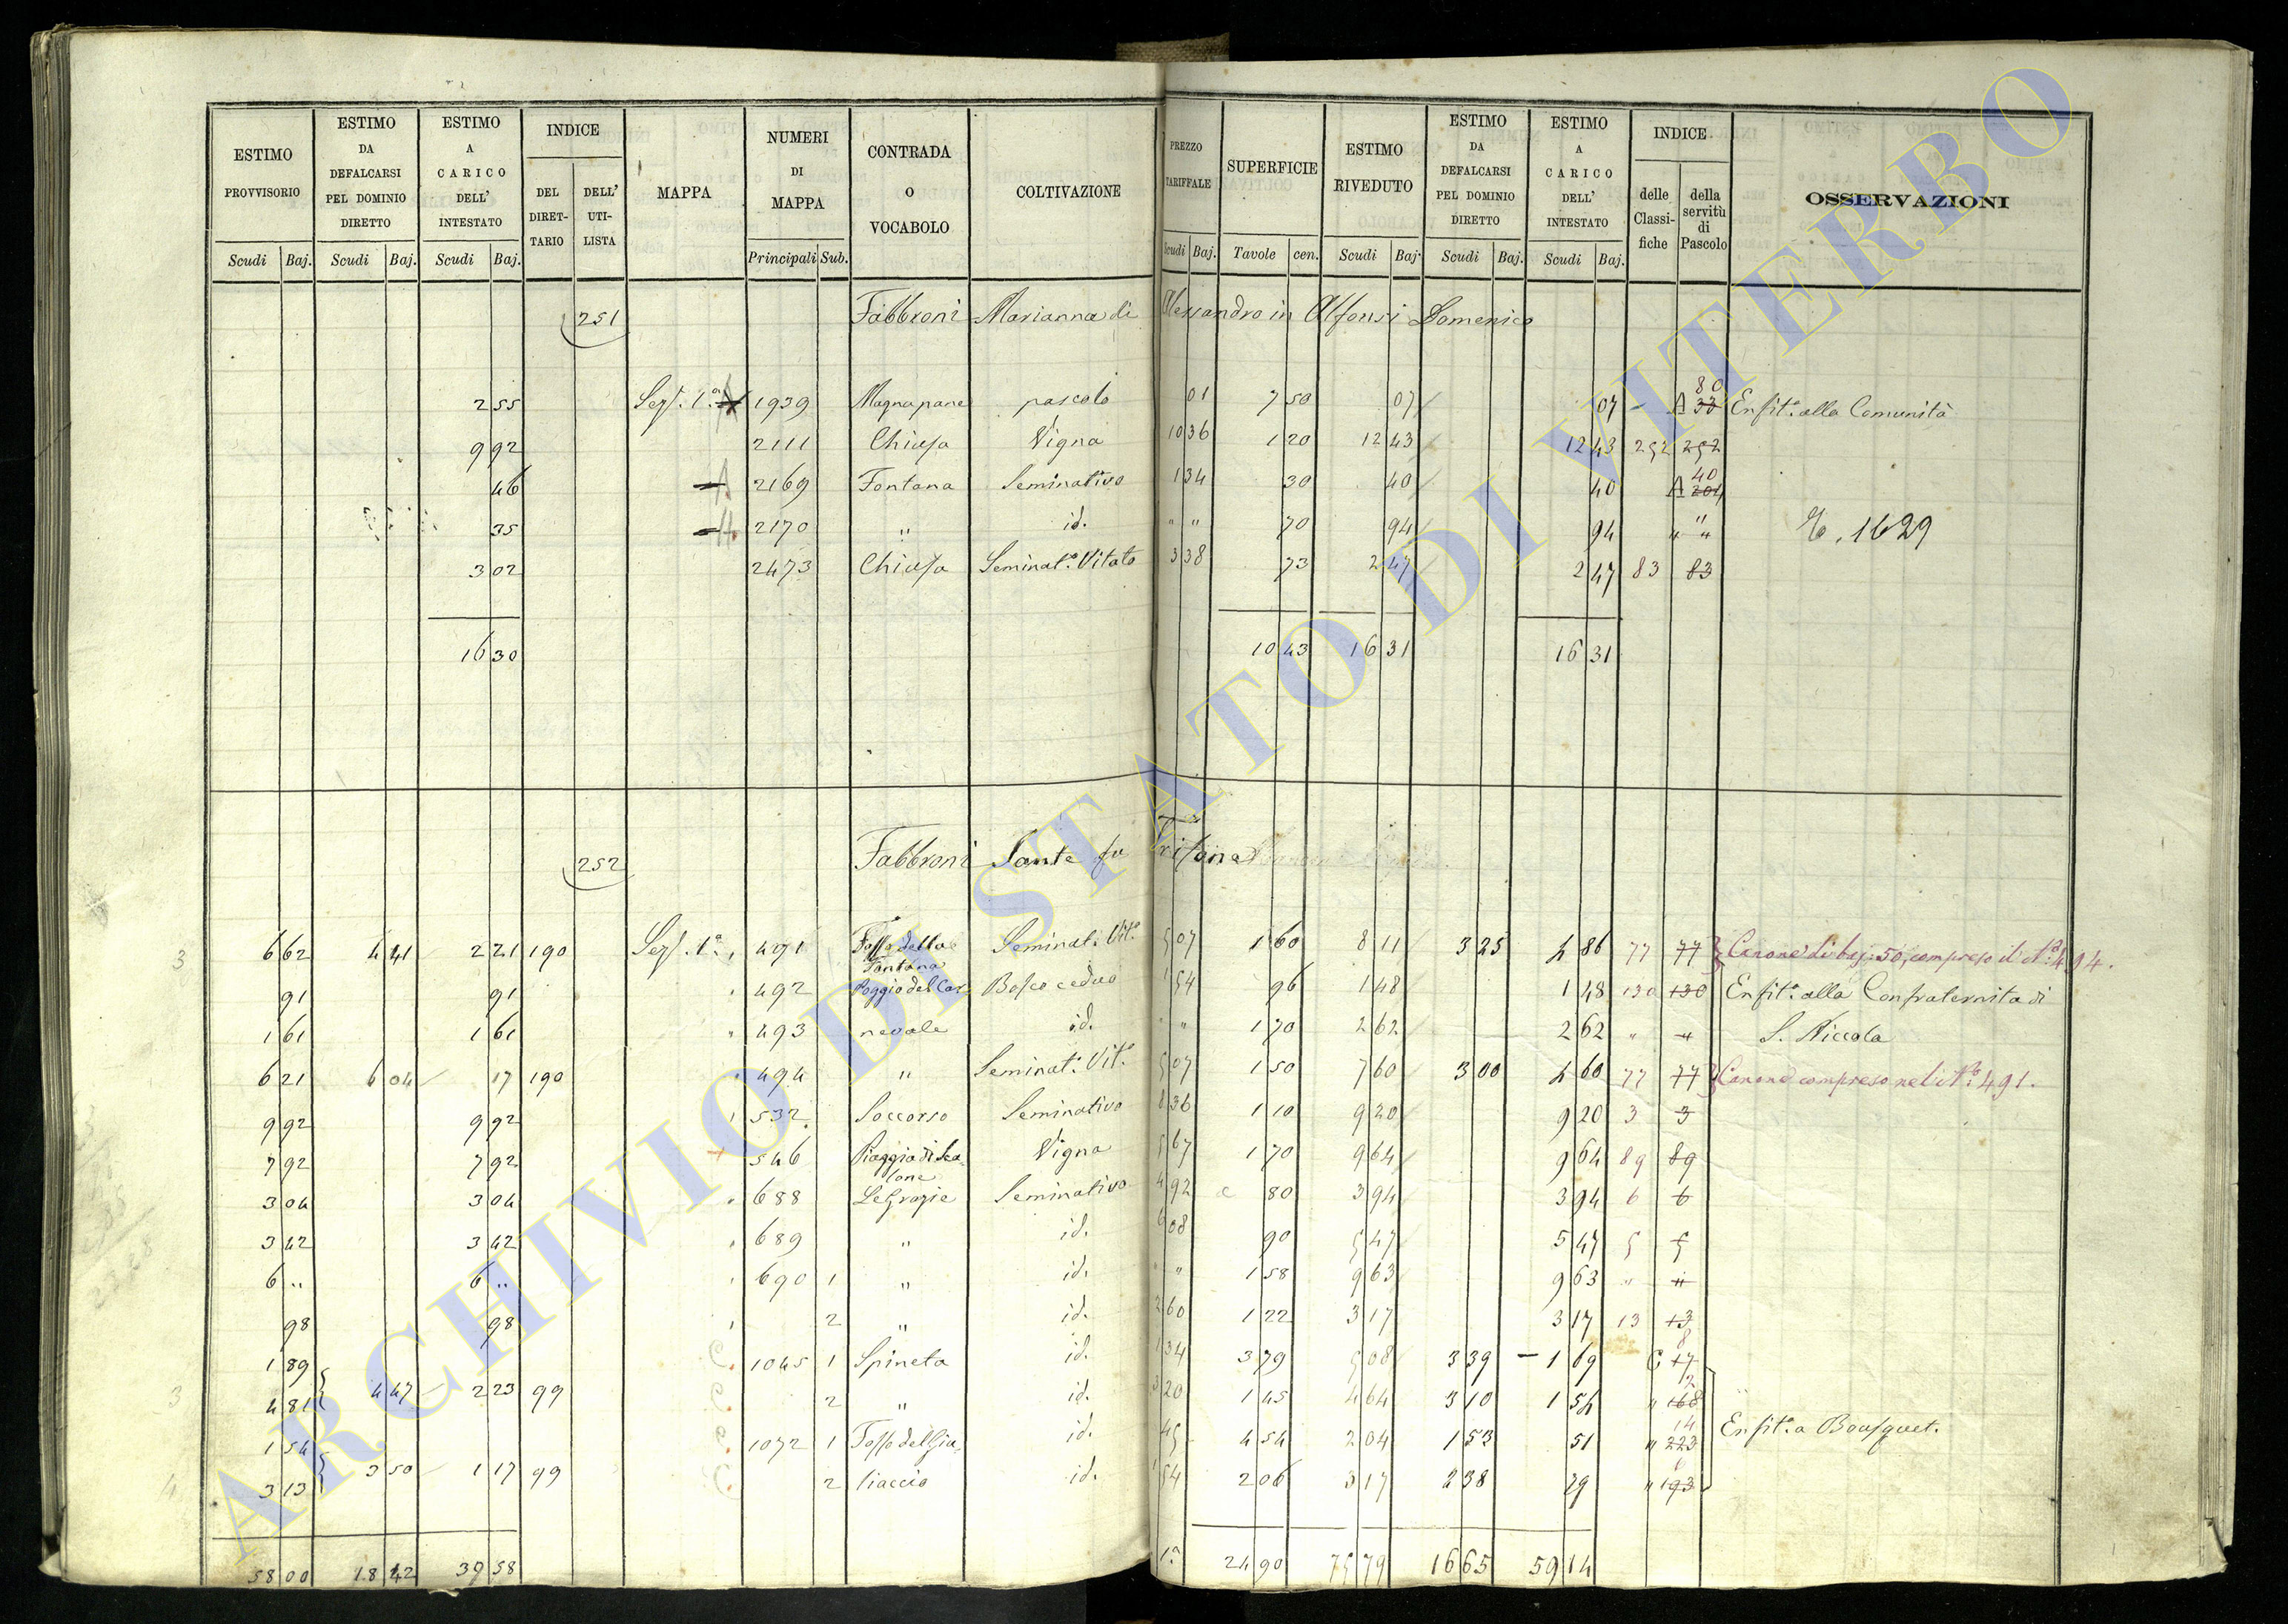 ESTIMO PROVVISORIO | ESTIMO DA DEFALCARSI PEL DOMINIO DIRETTO | ESTIMO A CARICO DELL' INTESTATO | INDICE DEL DIRET-TARIO | DELL' UTI-LISTA | MAPPA | NUMERI DI MAPPA | CONTRADA O VOCABOLO | COLTIVAZIONE | PREZZO TARIFFALE | SUPERFICIE | ESTIMO RIVEDUTO | ESTIMO DA DEFALCARSI PEL DOMINIO DIRETTO | ESTIMO A CARICO DELL' INTESTATO | INDICE delle Classi-fiche | della servitù di Pascolo | OSSERVAZIONI
Scudi Baj. | Scudi Baj. | Scudi Baj. | Principali Sub. | Scudi Baj. | Tavole cen. | Scudi Baj. | Scudi Baj. | Scudi Baj.
251 Fabbroni Marianna di Alessandro in Alfonsi Domenico
2 55 Sez. 1.a 1939 Magnapane pascolo 01 7 50 07 07 A 33 80 Enfit. alla Comunità
9 92 2111 Chiusa Vigna 10 36 1 20 12 43 12 43 252 252
46 2169 Fontana Seminativo 1 34 30 40 40 A 201 40
35 2170 " id. " " 70 94 94 " " E. 1629
3 02 2473 Chiusa Seminat.o Vitato 3 38 73 2 47 2 47 83 83
16 30 10 43 16 31 16 31
252 Fabbroni Sante fu Trifone
3 6 62 4 41 2 21 190 Sez. 1.a 491 Fosso della Fontana Seminat. Vit.o 5 07 1 60 8 11 3 25 4 86 77 77 Canone di baj. 50, compreso il N.o 494.
91 91 492 Poggio del Car- Bosco ceduo 1 54 96 1 48 1 48 130 130 Enfit. alla Confraternita di
1 61 1 61 493 nevale id. " " 1 70 2 62 2 62 " " S. Niccola
6 21 6 04 17 190 494 " Seminat. Vit.o 5 07 1 50 7 60 3 00 4 60 77 77 Canone compreso nel N.o 491.
9 92 9 92 532 Soccorso Seminativo 8 36 1 10 9 20 9 20 3 3
7 92 7 92 546 Vigna 5 67 1 70 9 64 9 64 89 89
3 04 3 04 688 Le Grazie Seminativo 4 92 80 3 94 3 94 6 6
3 42 3 42 689 " id. 6 08 90 5 47 5 47 5 5
6 " 6 " 690 1 " id. " " 1 58 9 63 9 63 " "
98 98 2 " id. 2 60 1 22 3 17 3 17 13 13
1 89 1045 1 Spineta id. 1 34 3 79 5 08 3 39 1 69 C 17 8
3 4 81 4 47 2 23 99 2 " id. 3 20 1 45 4 64 3 10 1 54 " 168 2
1 54 1072 1 Fosso del Giu- id. 45 4 54 2 04 1 53 51 " 223 14 Enfit. a Bousquet.
4 3 13 3 50 1 17 99 2 liaccio id. 1 54 2 06 3 17 2 38 79 " 193
58 00 18 42 39 58 1.a 24 90 75 79 16 65 59 14
ARCHIVIO DI STATO DI VITERBO